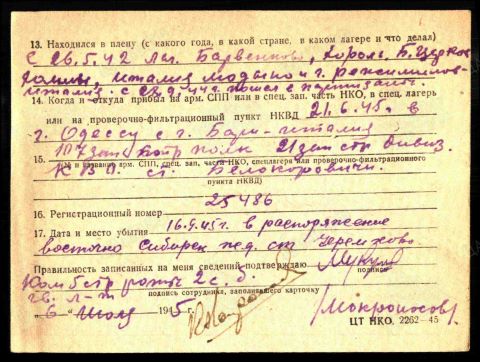 13. Находился в плену (с какого года, в какой стране, в каком лагере и что делал)
с 26.5.42 Барвенково, Король, Б. Церков
Италия г.
Италия с 44 г. пошел в партизаны.
14. Когда и откуда прибыл на арм. СПП или в спец. зап. часть НКО, в спец. лагерь
или на проверочно-фильтрационный пункт НКВД 21.6.45 г. в
г. Одессу с г. Бари-Италия
15. 117 зап. полк 21 зап. стр. дивиз.
(№ и название арм. СПП, спец. зап. части НКО, спецлагеря или проверочно-фильтрационного
КВО. ст. Белокоровичи.
пункта НКВД)
16. Регистрационный номер 25486
17. Дата и место убытия 16.9.45 г. в распоряжение
восточно Сибирск. жел. ст. Черемхово
Правильность записанных на меня сведений подтверждаю
подпись
Ком. стр. роты 2 с. б.
подпись сотрудника, заполнившего карточку
гв. л-т /Мокроносов/
"6" Июля 1945 г.
ЦТ НКО. 2262—45